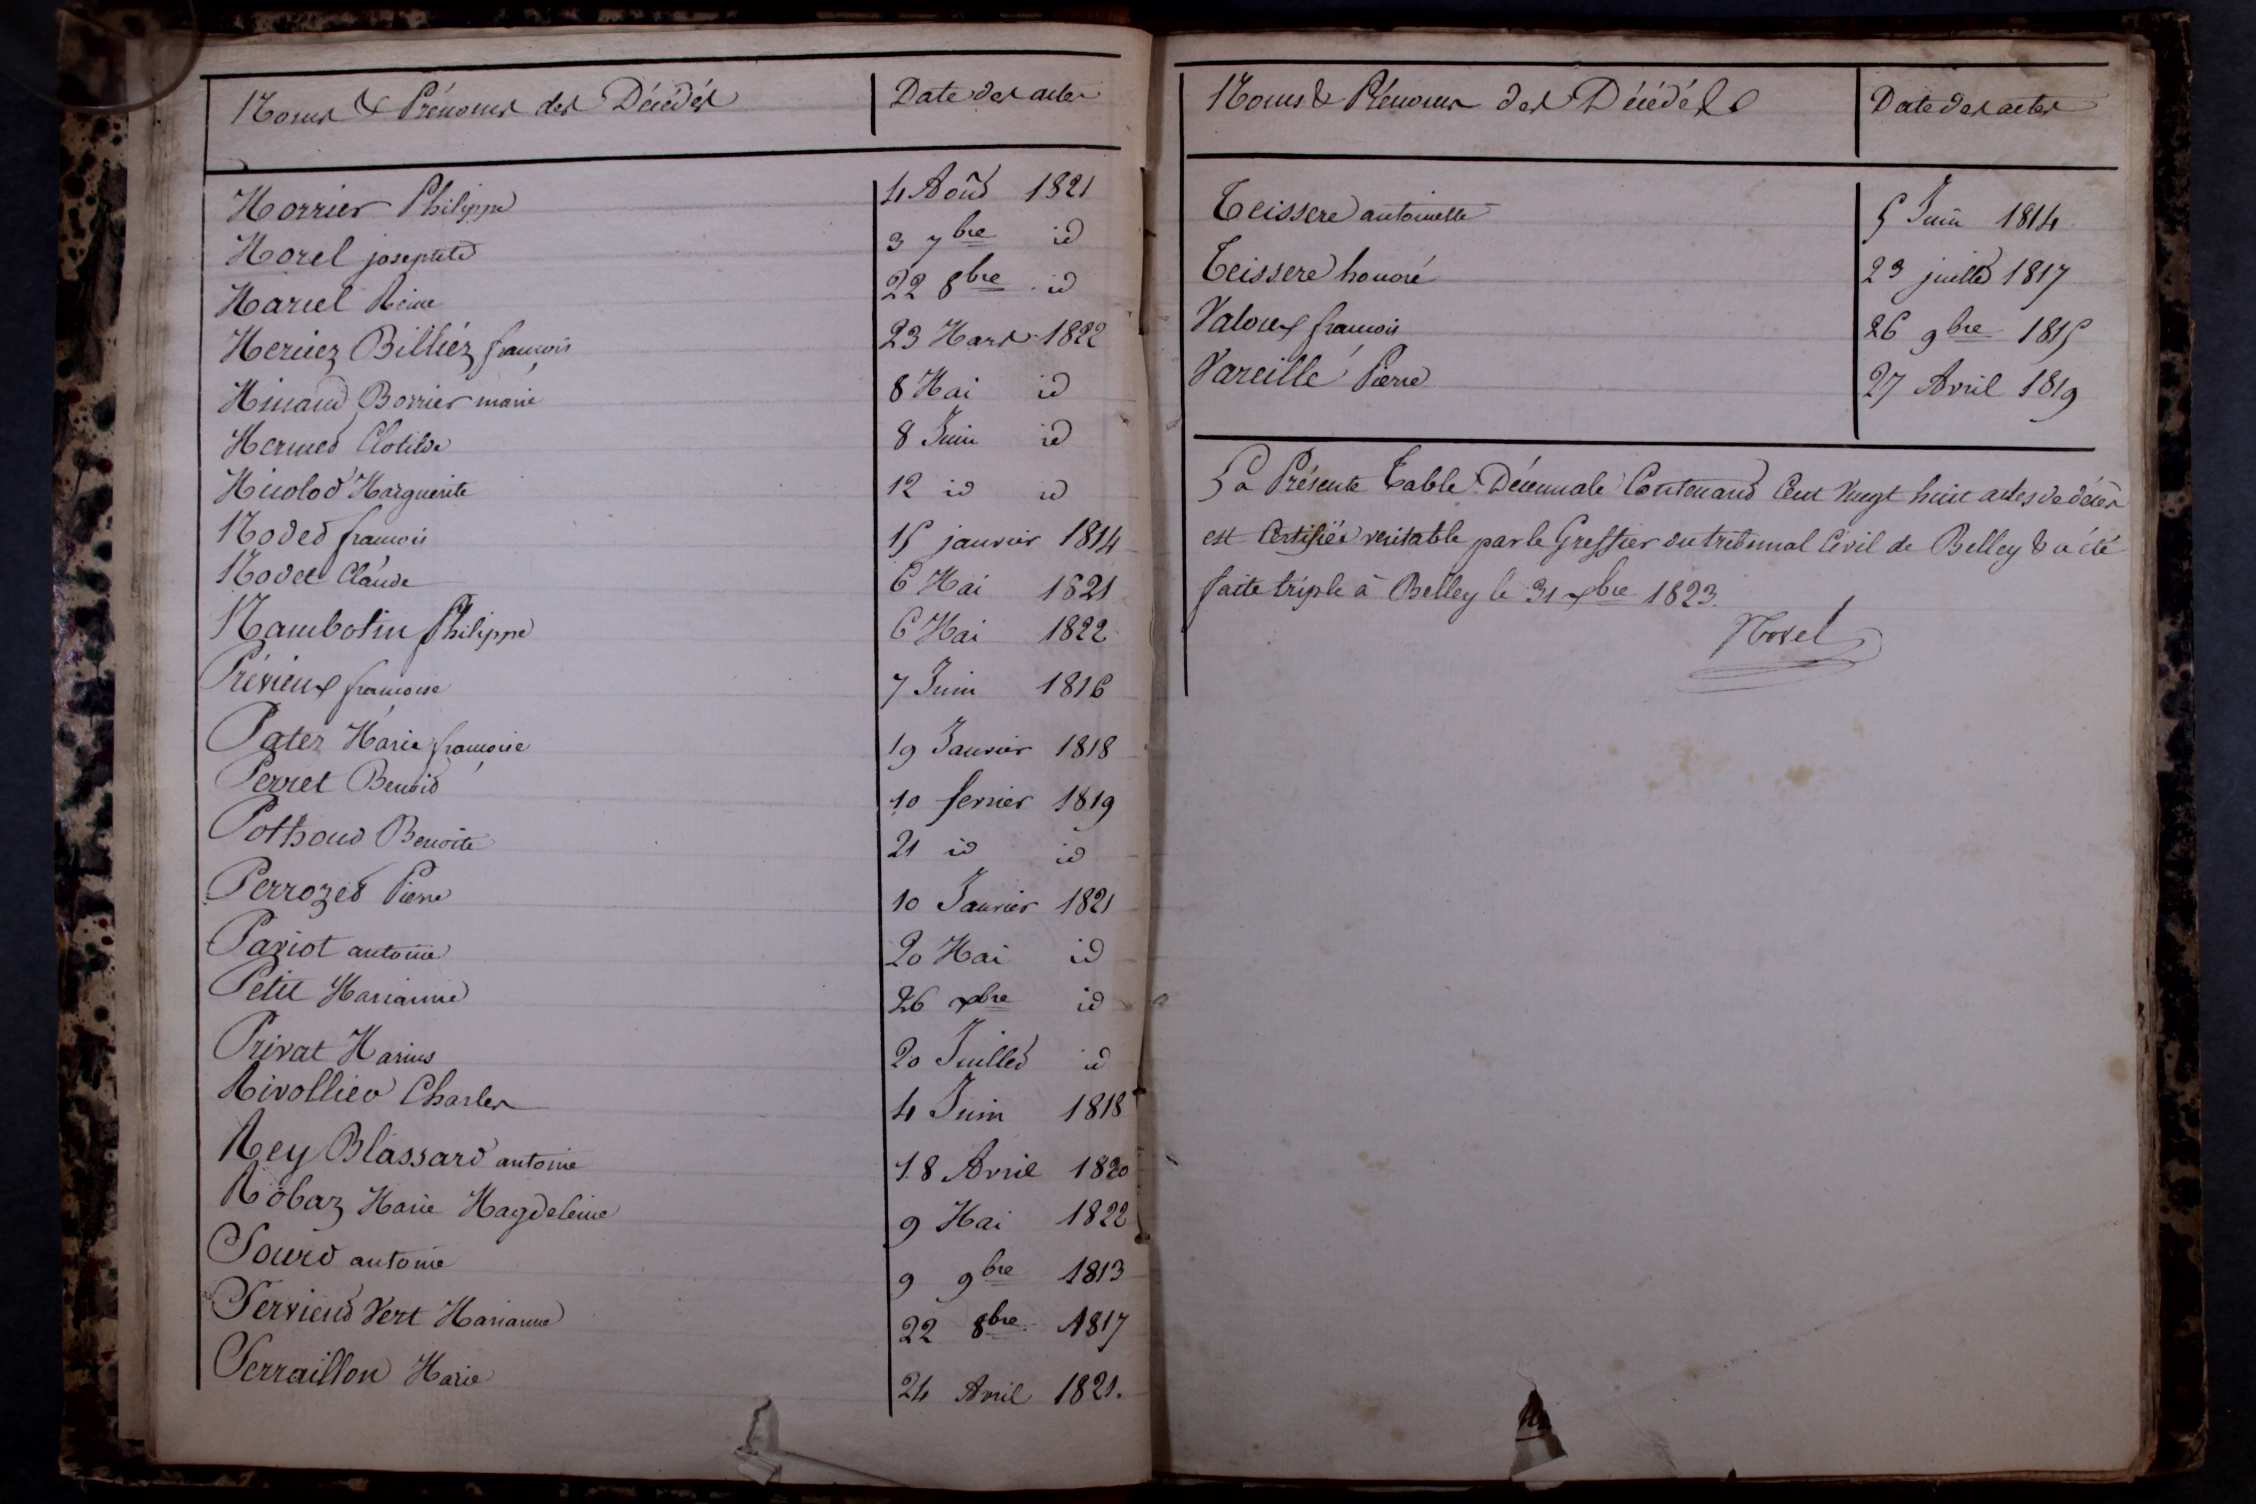 Noms & Prénoms des Décédés | Date des actes
Morrier Philippe | 4 Août 1821
Morel josephte | 3 7bre id
Martel Reine | 22 8bre id
Mercier Billiez françois | 23 Mars 1822
Minaud Borrier marie | 8 Mai id
Mermet Clotilde | 8 Juin id
Micolod Marguerite | 12 id id
Nodet francois | 15 janvier 1814
Nodet Claude | 6 Mai 1821
Nambotin Philippe | 6 Mai 1822
Prévieux francoise | 7 Juin 1816
Pater Marie françoise | 19 Janvier 1818
Perret Benoid | 10 fevrier 1819
Pothoud Benoite | 21 id id
Perrozet Pierre | 10 Janvier 1821
Pariot antoine | 20 Mai id
Petit Marianne | 26 xbre id
Privat Marius | 20 Juillet id
Rivollier Charles | 4 Juin 1818
Rey Blassard antoine | 18 Avril 1820
Robaz Marie Magdeleine | 9 Mai 1822
Sourd antoine | 9 9bre 1813
Servient Vert Marianne | 22 8bre 1817
Serraillon Marie | 24 Avril 1821.
Noms & Prénoms des Décédés | Date des actes
Teissere antoinette | 5 Juin 1814
Teissere honoré | 23 juillet 1817
Valoux francois | 26 9bre 1815
Vareille Pierre | 27 Avril 1819
La Présente Table Décennale Contenand Cent Vingt huit actes de décès
est Certifiée veritable par le Greffier du tribunal Civil de Belley & a été
faite triple à Belley le 31 xbre 1823.